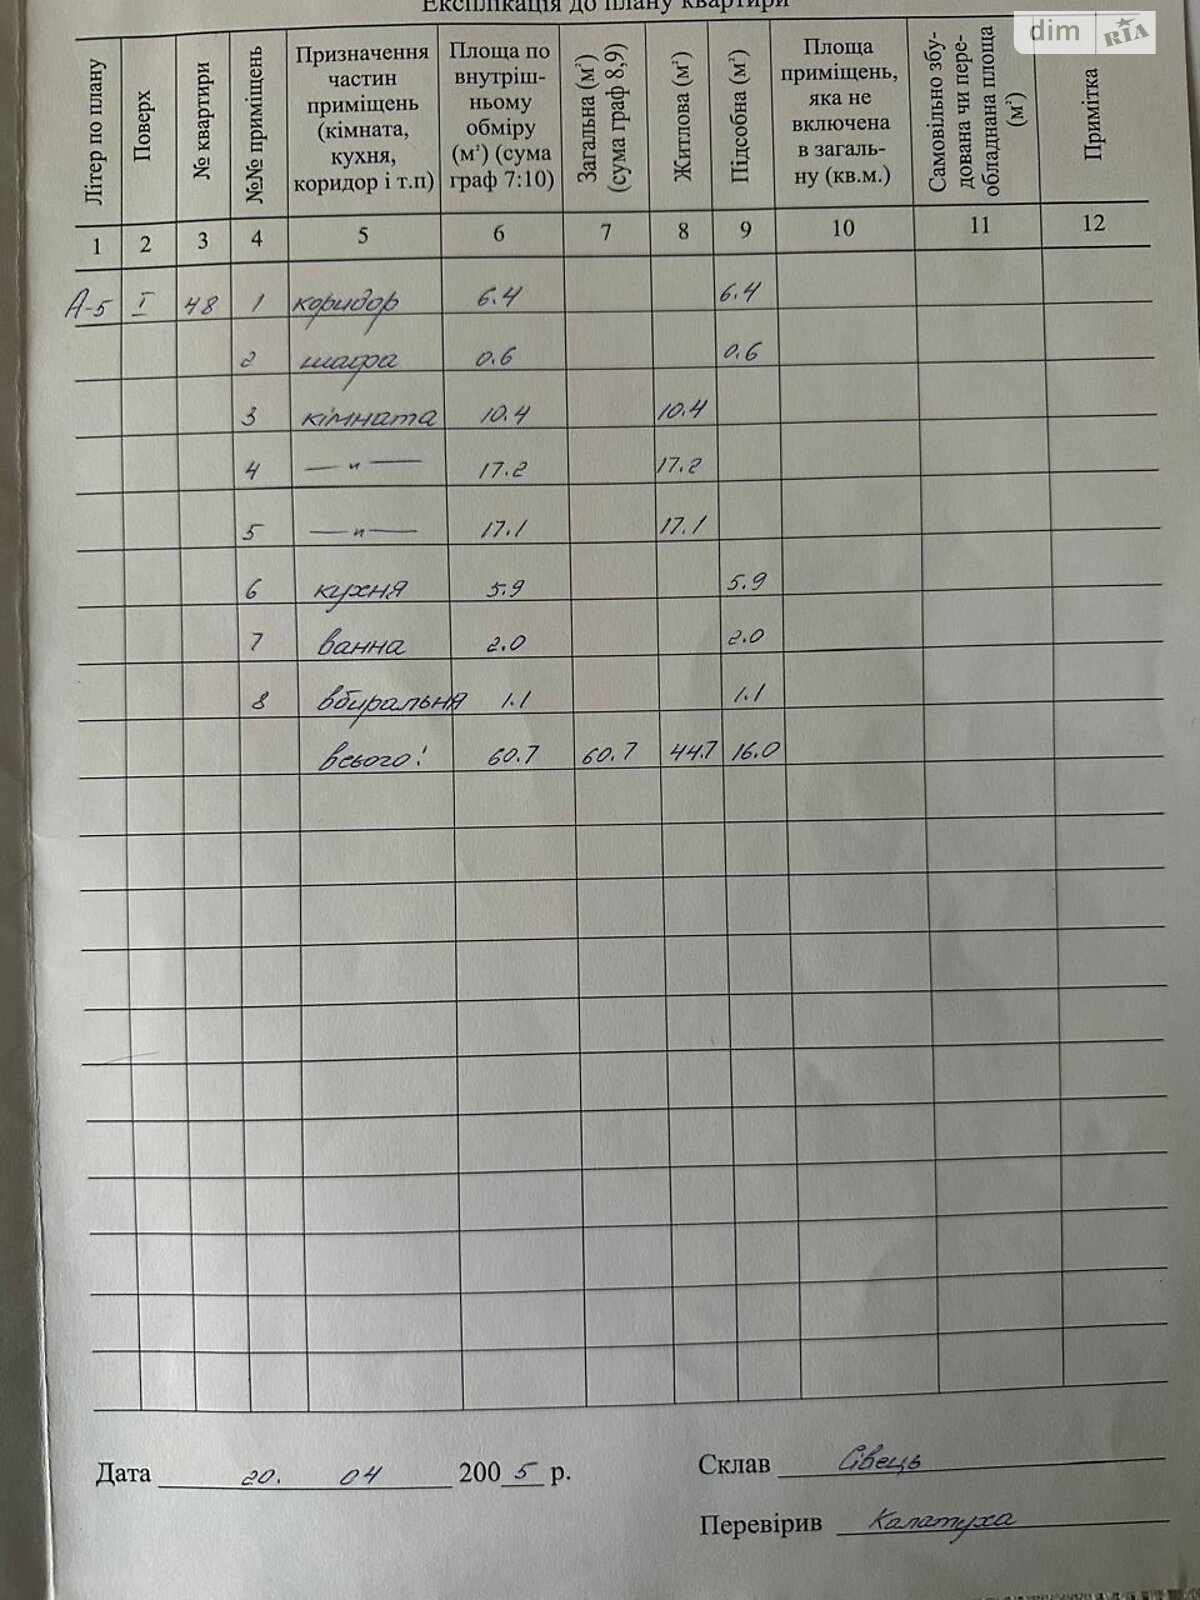 Експлікація до плану квартири
dim RIA
Літер по плану
Поверх
№ квартири
№№ приміщень
Призначення
частин
приміщень
(кімната,
кухня,
коридор і т.п)
Площа по
внутріш-
ньому
обміру
(м²) (сума
граф 7:10)
Загальна (м²)
(сума граф 8,9)
Житлова (м²)
Підсобна (м²)
Площа
приміщень,
яка не
включена
в загаль-
ну (кв.м.)
Самовільно збу-
дована чи пере-
обладнана площа
(м²)
Примітка
1 2 3 4 5 6 7 8 9 10 11 12
А-5 I 48 1 коридор 6.4 6.4
2 шафа 0.6 0.6
3 кімната 10.4 10.4
4 —"— 17.2 17.2
5 —"— 17.1 17.1
6 кухня 5.9 5.9
7 ванна 2.0 2.0
8 вбиральня 1.1 1.1
всього: 60.7 60.7 44.7 16.0
Дата 20. 04 2005 р.
Склав Сівець
Перевірив Калатуха